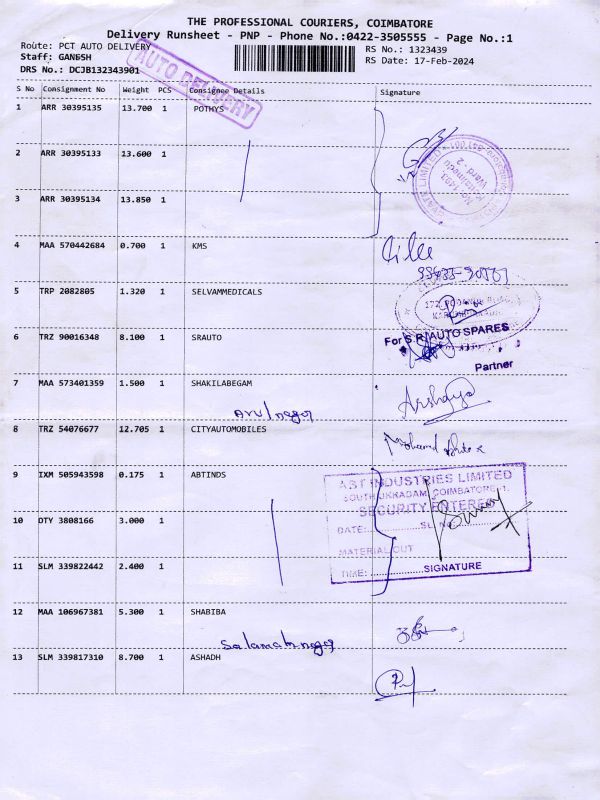 THE PROFESSIONAL COURIERS, COIMBATORE
Delivery Runsheet - PNP - Phone No.:0422-3505555 - Page No.:1
Route: PCT AUTO DELIVERY
RS No.: 1323439
Staff: GANESH
RS Date: 17-Feb-2024
DRS No.: DCJB132343901
AUTO DELIVERY
S No Consignment No Weight PCS Consignee Details Signature
1 ARR 30395135 13.700 1 POTHYS
2 ARR 30395133 13.600 1
3 ARR 30395134 13.850 1
4 MAA 570442684 0.700 1 KMS
5 TRP 2082805 1.320 1 SELVAMMEDICALS
6 TRZ 90016348 8.100 1 SRAUTO
For S.R. AUTO SPARES
Partner
7 MAA 573401359 1.500 1 SHAKILABEGAM
Arul nagar
8 TRZ 54076677 12.705 1 CITYAUTOMOBILES
9 IXM 505943598 0.175 1 ABTINDS
ABT INDUSTRIES LIMITED
SOUTH UKKADAM, COIMBATORE-1.
SECURITY ENTERED
10 DTY 3808166 3.000 1
DATE:
SL. NO.
MATERIAL OUT
11 SLM 339822442 2.400 1
TIME: SIGNATURE
12 MAA 106967381 5.300 1 SHABIBA
Salamath nagar
13 SLM 339817310 8.700 1 ASHADH